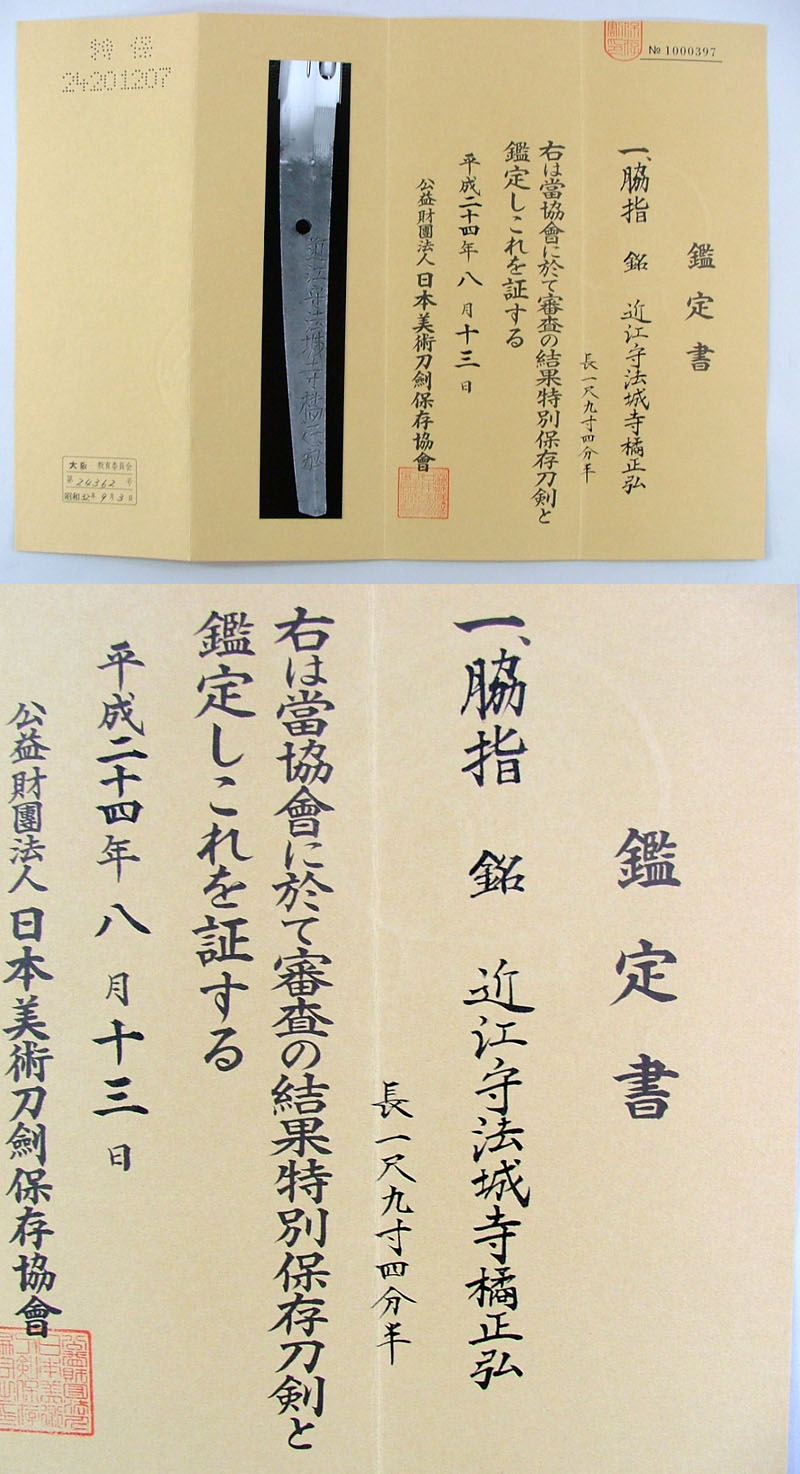 № 1000397
鑑定書
一、脇指 銘 近江守法城寺橘正弘
長一尺九寸四分半
右は當協會に於て審査の結果特別保存刀剣と
鑑定しこれを証する
平成二十四年八月十三日
公益財團法人 日本美術刀劍保存協會
近江守法城寺橘正弘
特保
24201207
大阪 教育委員会
第 24362 号
昭和32年9月3日
鑑定書
一、脇指 銘 近江守法城寺橘正弘
長一尺九寸四分半
右は當協會に於て審査の結果特別保存刀剣と
鑑定しこれを証する
平成二十四年八月十三日
公益財團法人 日本美術刀劍保存協會